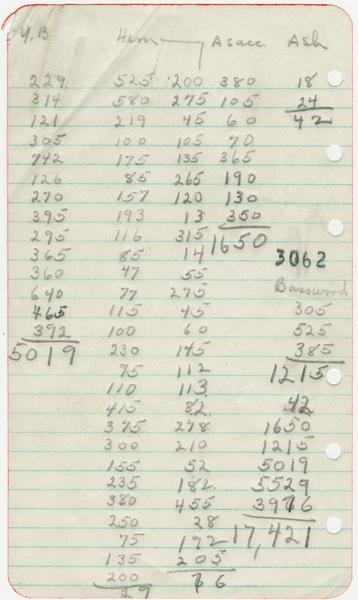 Y.B Hem Asacc Ash
229 525 200 380 18
314 580 275 105 24
121 219 45 60 42
305 100 105 70
742 175 135 365
126 85 265 190
270 157 120 130
395 193 13 350
295 116 315 1650
365 85 14 3062
360 47 55
640 77 275 Basswood
465 115 45 305
392 100 60 525
5019 230 145 385
95 112 1215
110 113
415 82 42
375 278 1650
300 210 1215
155 52 5019
235 182 5529
380 455 3976
250 28 17,421
75 192
135 205
200 76
29